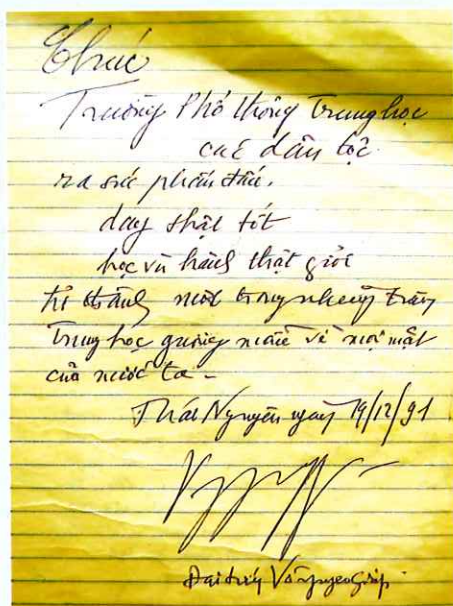 Chúc
Trường Phổ thông trung học
các dân tộc
ra sức phấn đấu,
dạy thật tốt
học và hành thật giỏi
trở thành một trong những trường
trung học gương mẫu về mọi mặt
của nước ta -
Thái Nguyên ngày 19/12/91
Đại tướng Võ Nguyên Giáp